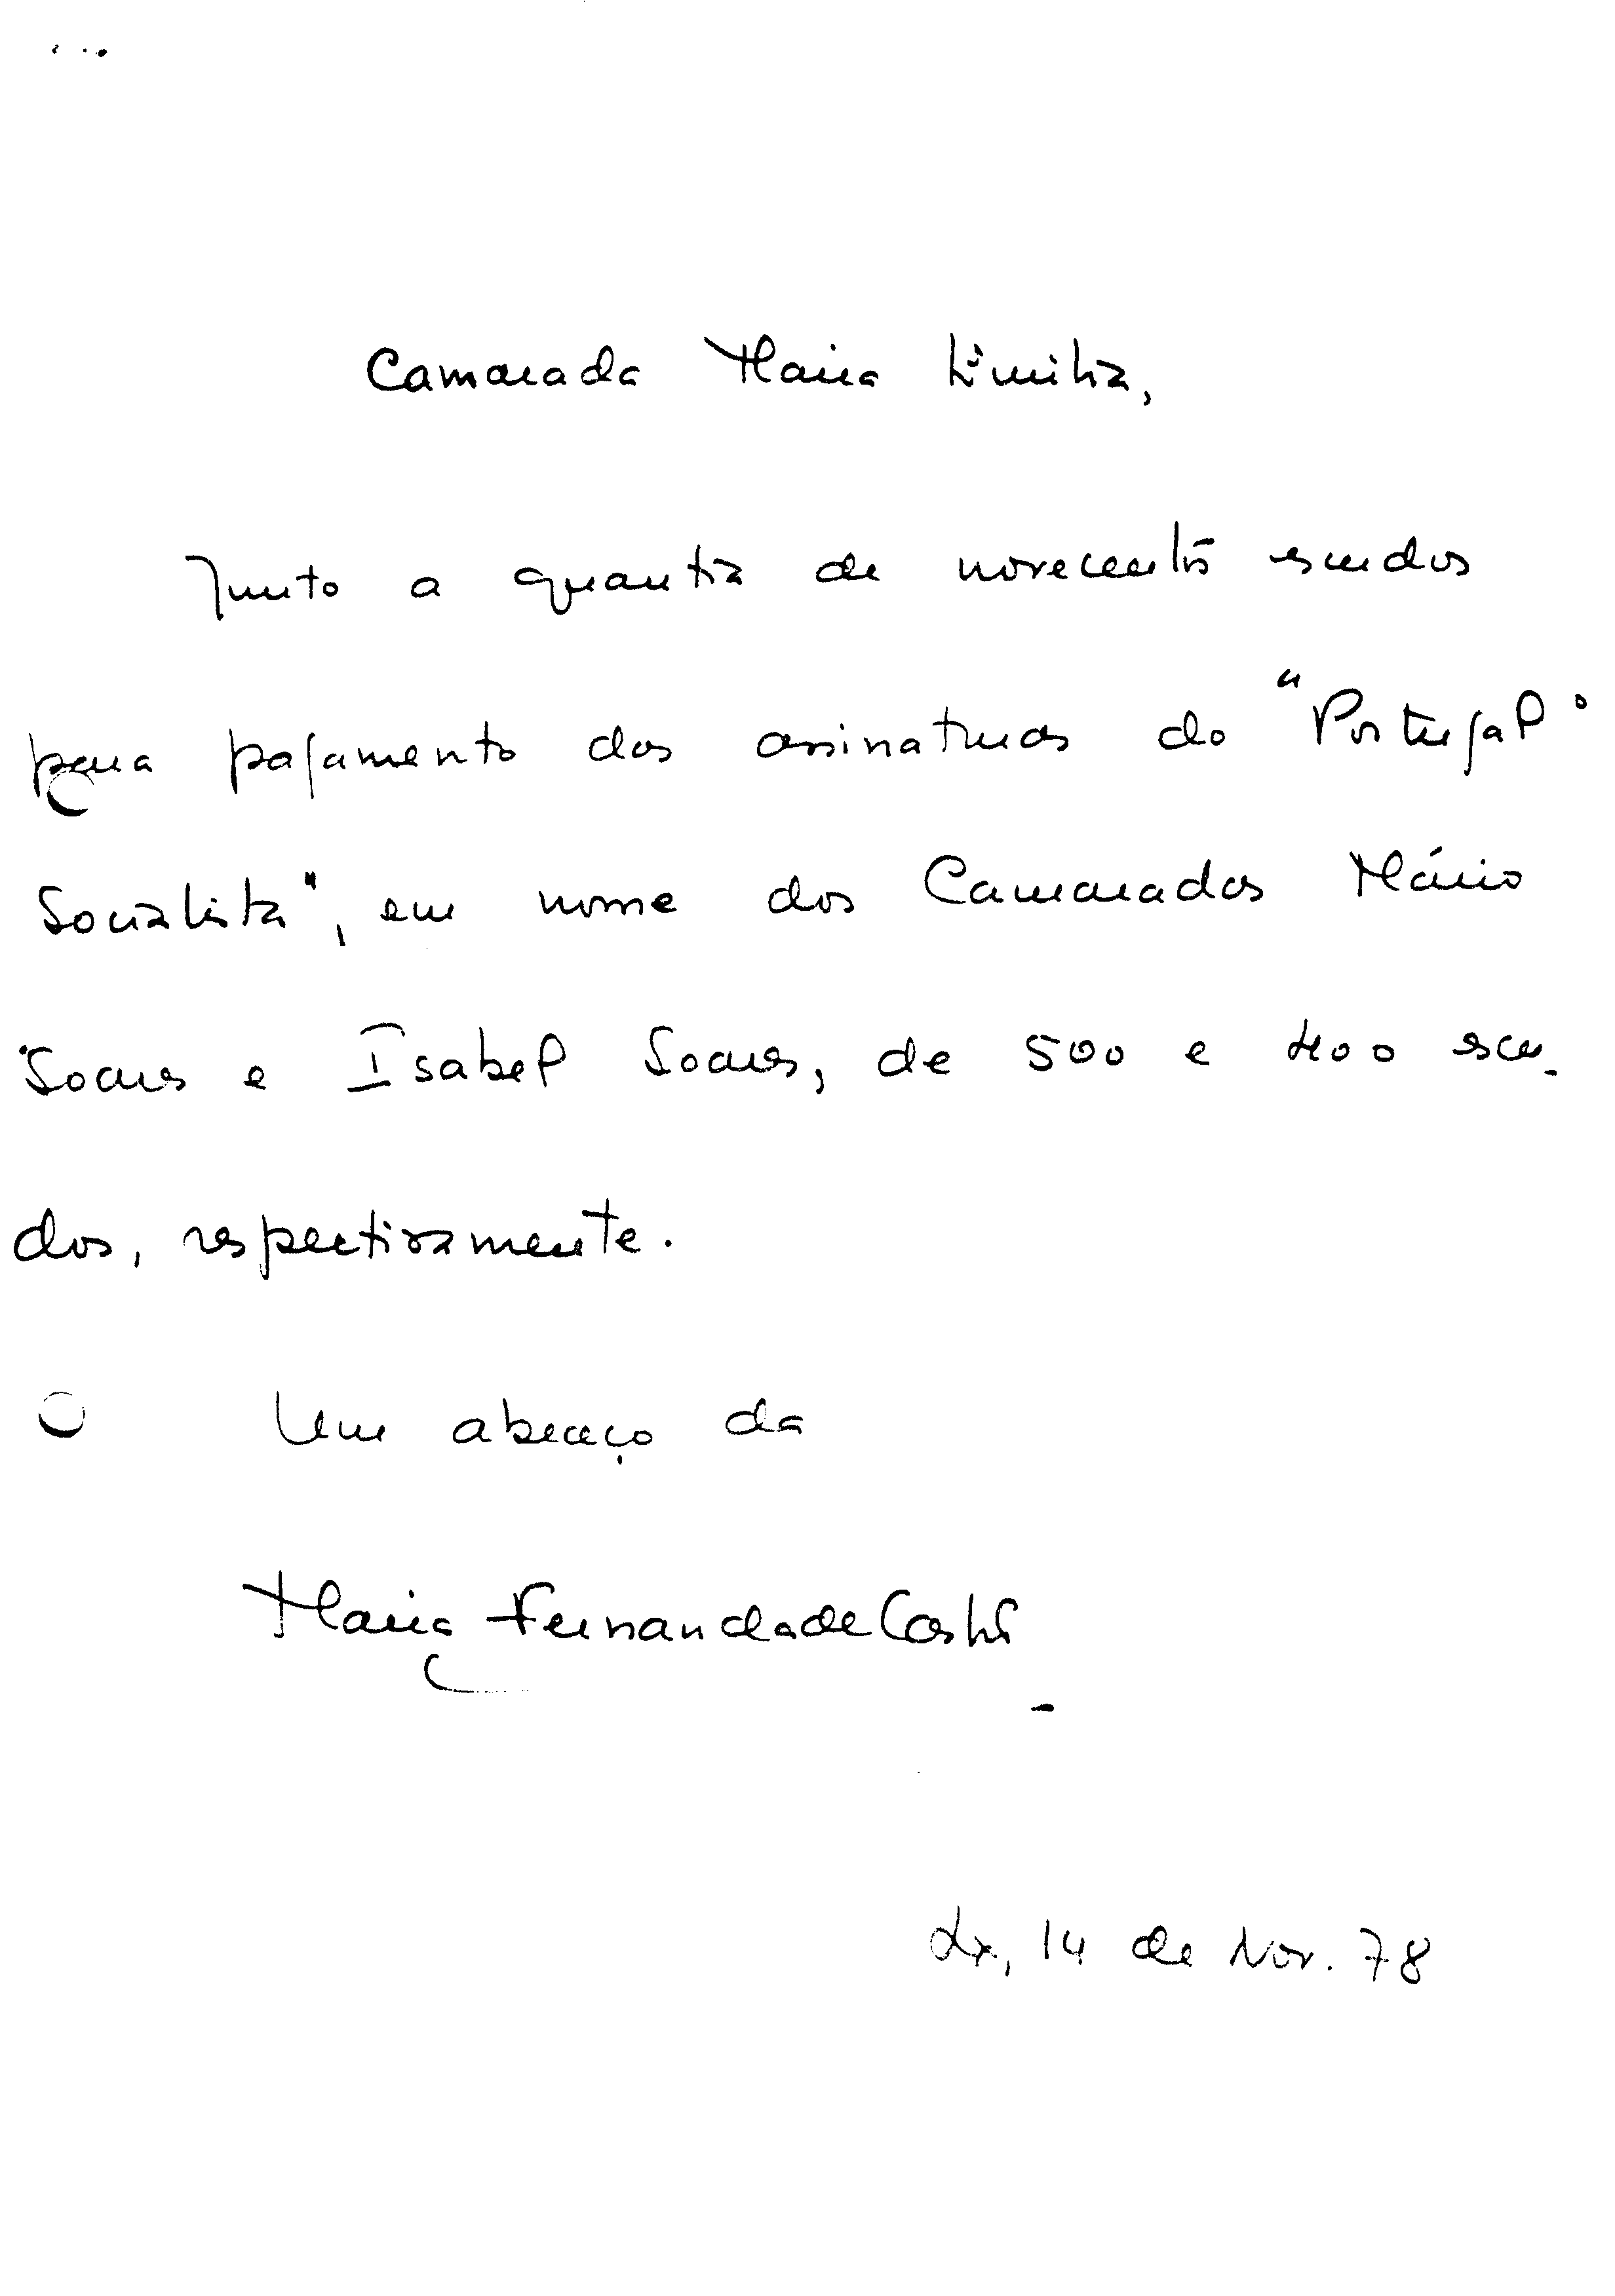 Camarada Maria Emília,
Junto a quantia de novecentos escudos
para pagamento das assinaturas do "Portugal
Socialista", em nome dos Camaradas Mário
Soares e Isabel Soares, de 500 e 400 escu-
dos, respectivamente.
Um abraço da
Maria Fernanda de Castro
Lx, 14 de Nov. 78